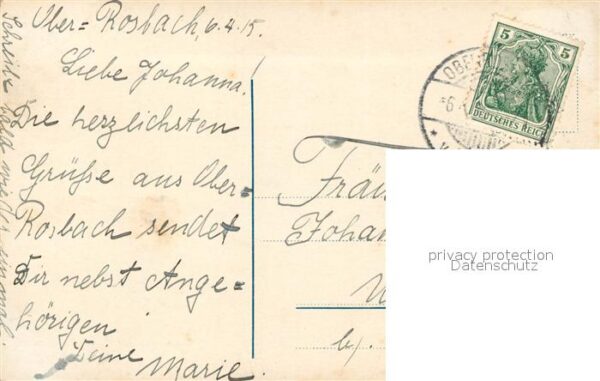 Ober=Rosbach, 6.4.15.
Liebe Johanna.
Die herzlichsten
Grüße aus Ober-
Rosbach sendet
Dir nebst Ange=
hörigen
Deine
Marie.
Schreibe bald wieder einmal.
5 5
DEUTSCHES REICH
OBER
Fräu
Johan
b/.
privacy protection
Datenschutz